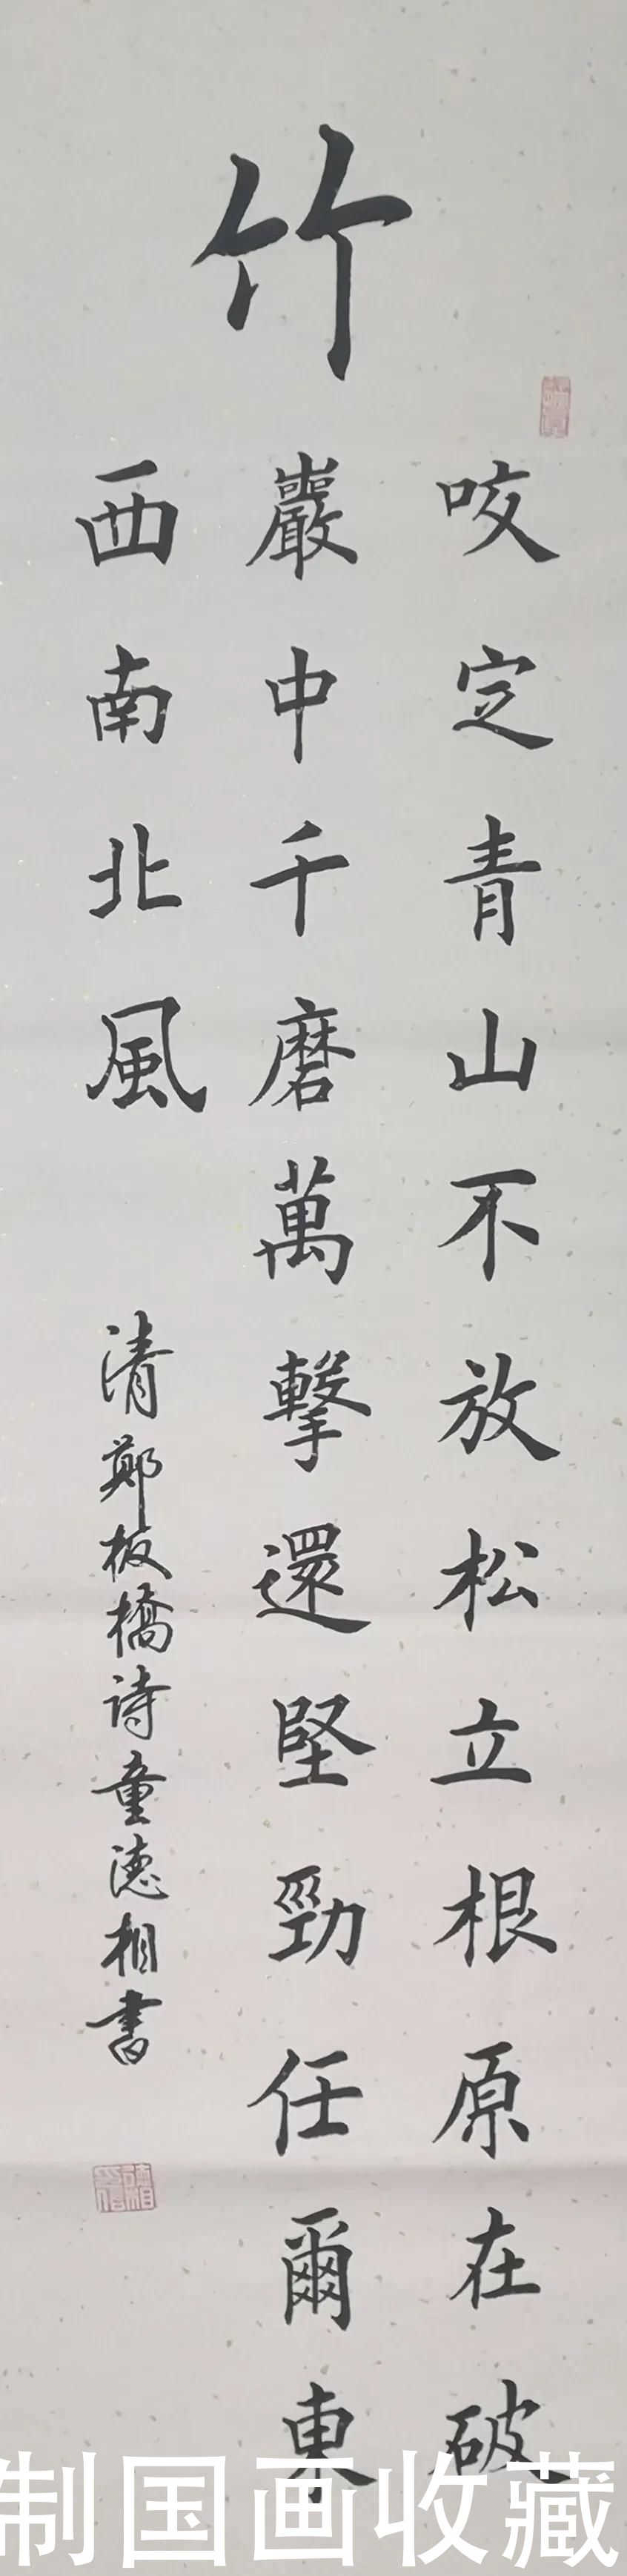 竹
咬定青山不放松立根原在破
巖中千磨萬擊還堅勁任爾東
西南北風
清鄭板橋詩童德相書
制国画收藏